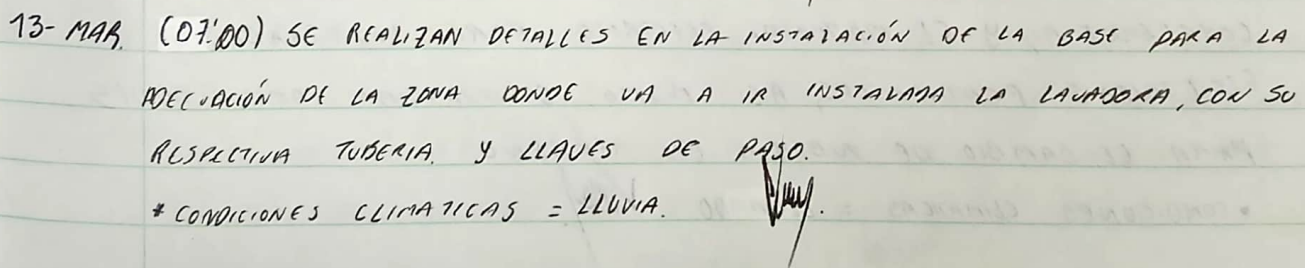 13- MAR. (07:00) SE REALIZAN DETALLES EN LA INSTALACIÓN DE LA BASE PARA LA
ADECUACIÓN DE LA ZONA DONDE VA A IR INSTALADA LA LAVADORA, CON SU
RESPECTIVA TUBERIA. Y LLAVES DE PASO.
* CONDICIONES CLIMATICAS = LLUVIA.